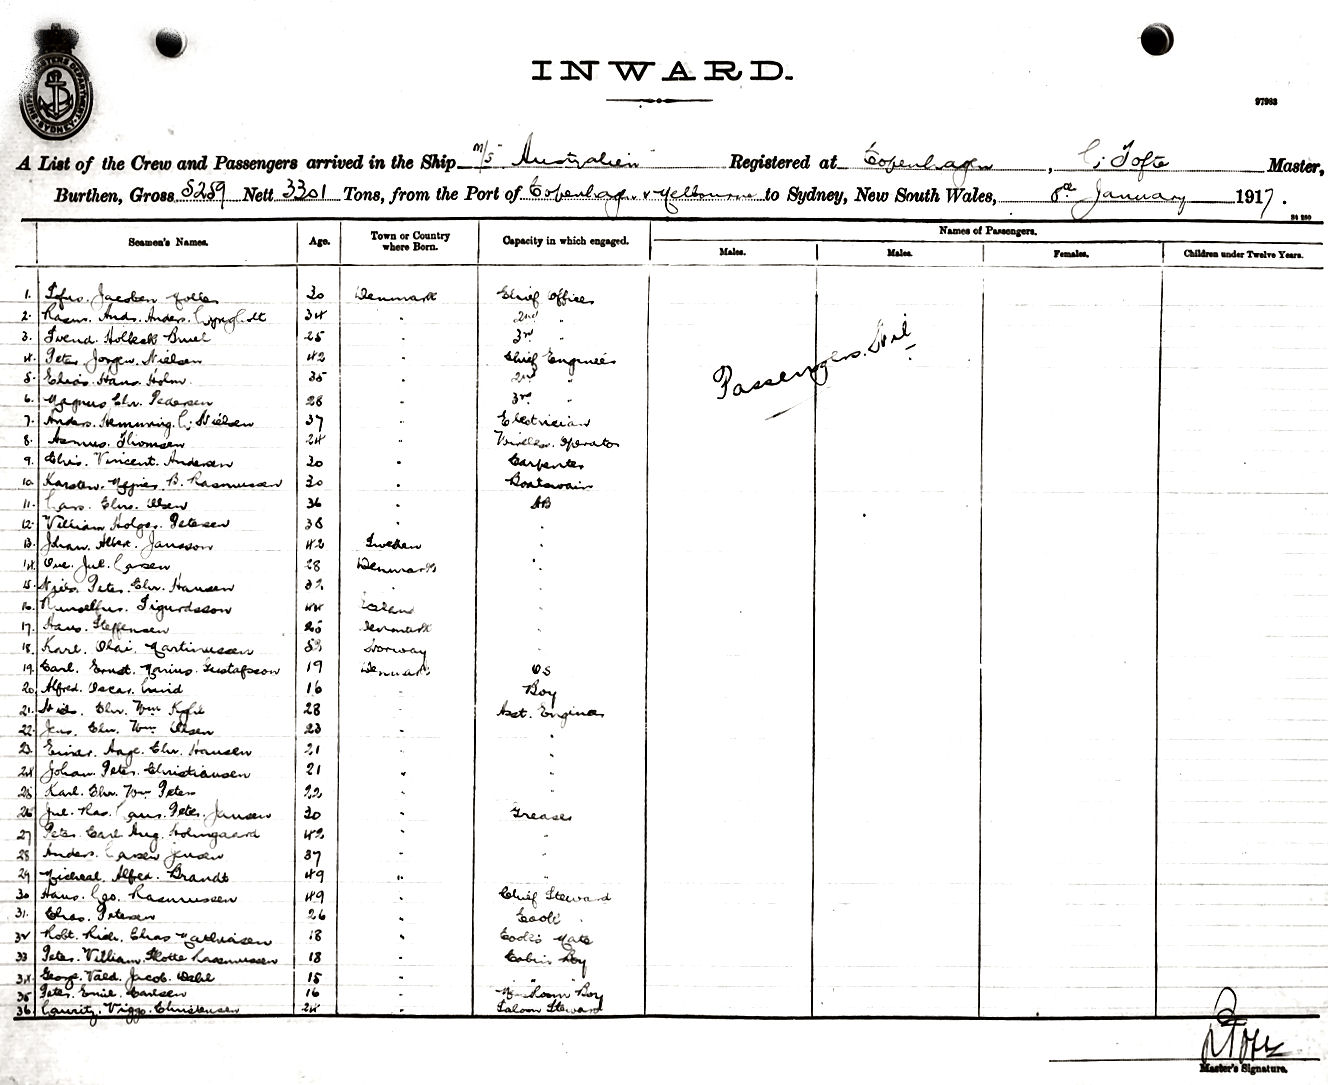 SHIPPING MASTERS DEPARTMENT SYDNEY
INWARD.
97963
A List of the Crew and Passengers arrived in the Ship M/S Australien Registered at Copenhagen, C. Tofte Master,
Burthen, Gross 5259 Nett 3301 Tons, from the Port of Copenhagen & Melbourne to Sydney, New South Wales, 8th January 1917.
Seamen's Names. Age. Town or Country where Born. Capacity in which engaged. Names of Passengers.
Males. Males. Females. Children under Twelve Years.
1. Jacobsen 30 Denmark Chief Officer
2. Rasm. Ands. Anders. 34 " 2nd "
3. Svend. Holbek 25 " 3rd "
4. Peter Jorgen Nielsen 42 " Chief Engineer
5. Hans Holm 35 " 2nd "
6. Magnus Chr. Pedersen 28 " 3rd "
7. Anders. Hemming C. Nielsen 37 " Electrician
8. Asmus. Thomsen 24 " Wireless Operator
9. Chris. Vincent. Andersen 30 " Carpenter
10. Karsten B. Rasmussen 30 " Boatswain
11. Lars. Chrs. Olsen 36 " AB
12. William Holger Petersen 38 " "
13. Johan. Albert. Jansson 42 Sweden "
14. Ove. Jul. Larsen 28 Denmark "
15. Niels. Peter. Chr. Hansen 32 " "
16. Sigurdsson 44 Iceland "
17. Hans. Steffensen 25 Denmark "
18. Karl. Olai. Martinussen 53 Norway "
19. Carl. Ernst. Marius. Gustafsson 19 Denmark OS
20. Alfred. Oscar. 16 " Boy
21. Niels. Chr. Wm 28 " Asst. Engineer
22. Jens. Chr. Wm Olsen 23 " "
23. Einer. Aage. Chr. Hansen 21 " "
24. Johan. Peter. Christiansen 21 " "
25. Karl. Chr. Wm Peters 22 " "
26. Jul. Ras. Peter. Jansen 30 " Greaser
27. Peter. Carl Aug. Holmgaard 42 " "
28. Anders. Larsen Jensen 37 " "
29. Micheal Alfred. Brandt 49 " "
30. Hans. Geo. Rasmussen 49 " Chief Steward
31. Chras. Petersen 26 " Cook
32. Robt. Rich. Chras Mathiasen 18 " Cook's Mate
33. Peter. William. Rasmussen 18 " Cabin Boy
34. George. Vald. Jacob. Dahl 15 " "
35. Peter. Emil. Carlsen 16 " Room Boy
36. Lauritz. Viggo. Christensen 24 " Saloon Steward
Passengers. Nil
C Tofte
Master's Signature.